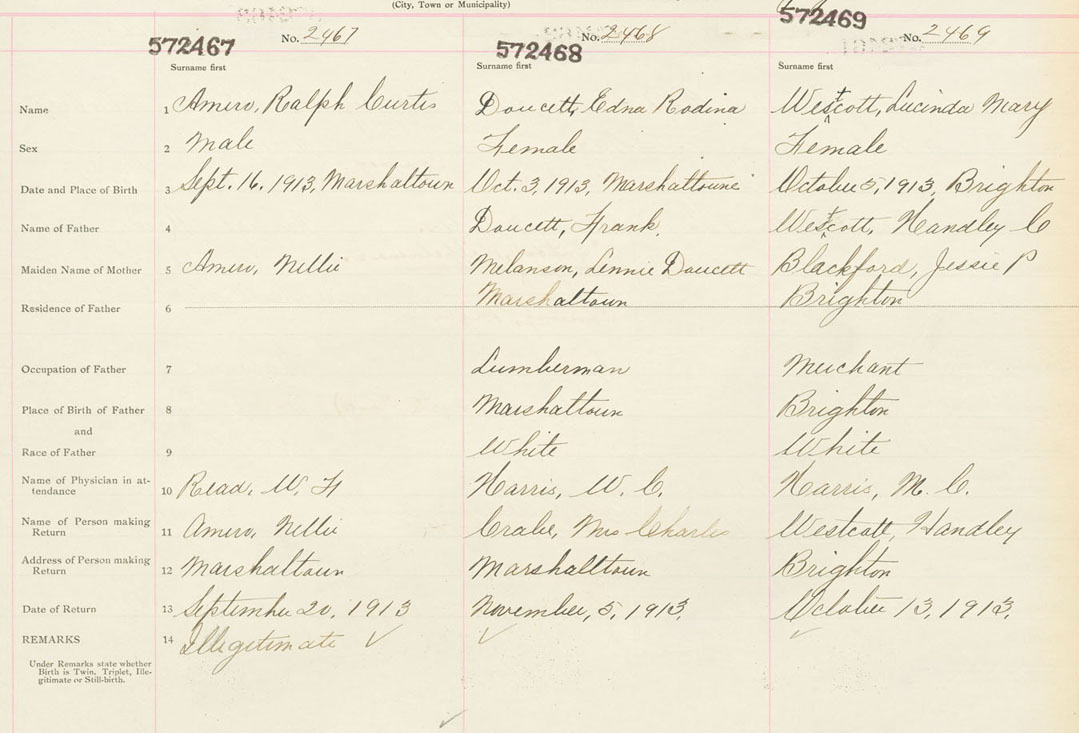 (City, Town or Municipality)
572467 No. 2467 572468 No. 2468 572469 No. 2469
Surname first Surname first Surname first
Name 1 Amero, Ralph Curtis Doucett, Edna Rodina Westcott, Lucinda Mary
Sex 2 Male Female Female
Date and Place of Birth 3 Sept. 16, 1913, Marshaltown Oct. 3, 1913, Marshaltown October 5, 1913, Brighton
Name of Father 4 Doucett, Frank. Westcott, Handley C
Maiden Name of Mother 5 Amero, Nellie Melanson, Lennie Doucett Blackford, Jessie P
Residence of Father 6 Marshaltown Brighton
Occupation of Father 7 Lumberman Merchant
Place of Birth of Father 8 Marshaltown Brighton
and
Race of Father 9 White White
Name of Physician in at-
tendance 10 Read, W. H Harris, W. C. Harris, M. C.
Name of Person making
Return 11 Amero, Nellie Crabe, Mrs Charles Westcott, Handley
Address of Person making
Return 12 Marshaltown Marshalltown Brighton
Date of Return 13 September 20, 1913 November, 5, 1913. October 13, 1913.
REMARKS 14 Illegitimate ✓ ✓ ✓
Under Remarks state whether
Birth is Twin. Triplet, Ille-
gitimate or Still-birth.